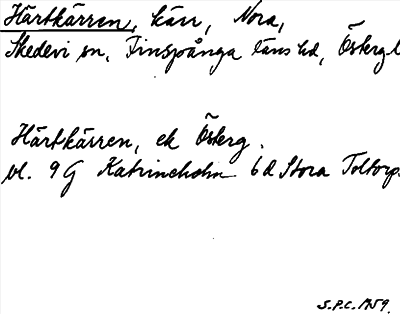 Härtkärren, kärr, Nora,
Skedevi sn, Finspånga läns hd, Österg l
Härtkärren, ek Österg.
bl. 9 G Katrineholm 6 d Stora Toltorp.
S.P.C. 1959.